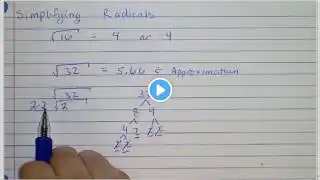 Simplifying Radicals
√16 = 4 or 4
√32 = 5.66 ← Approximation
√32
2·2 √2
8 4
4 2 2 2
2 2